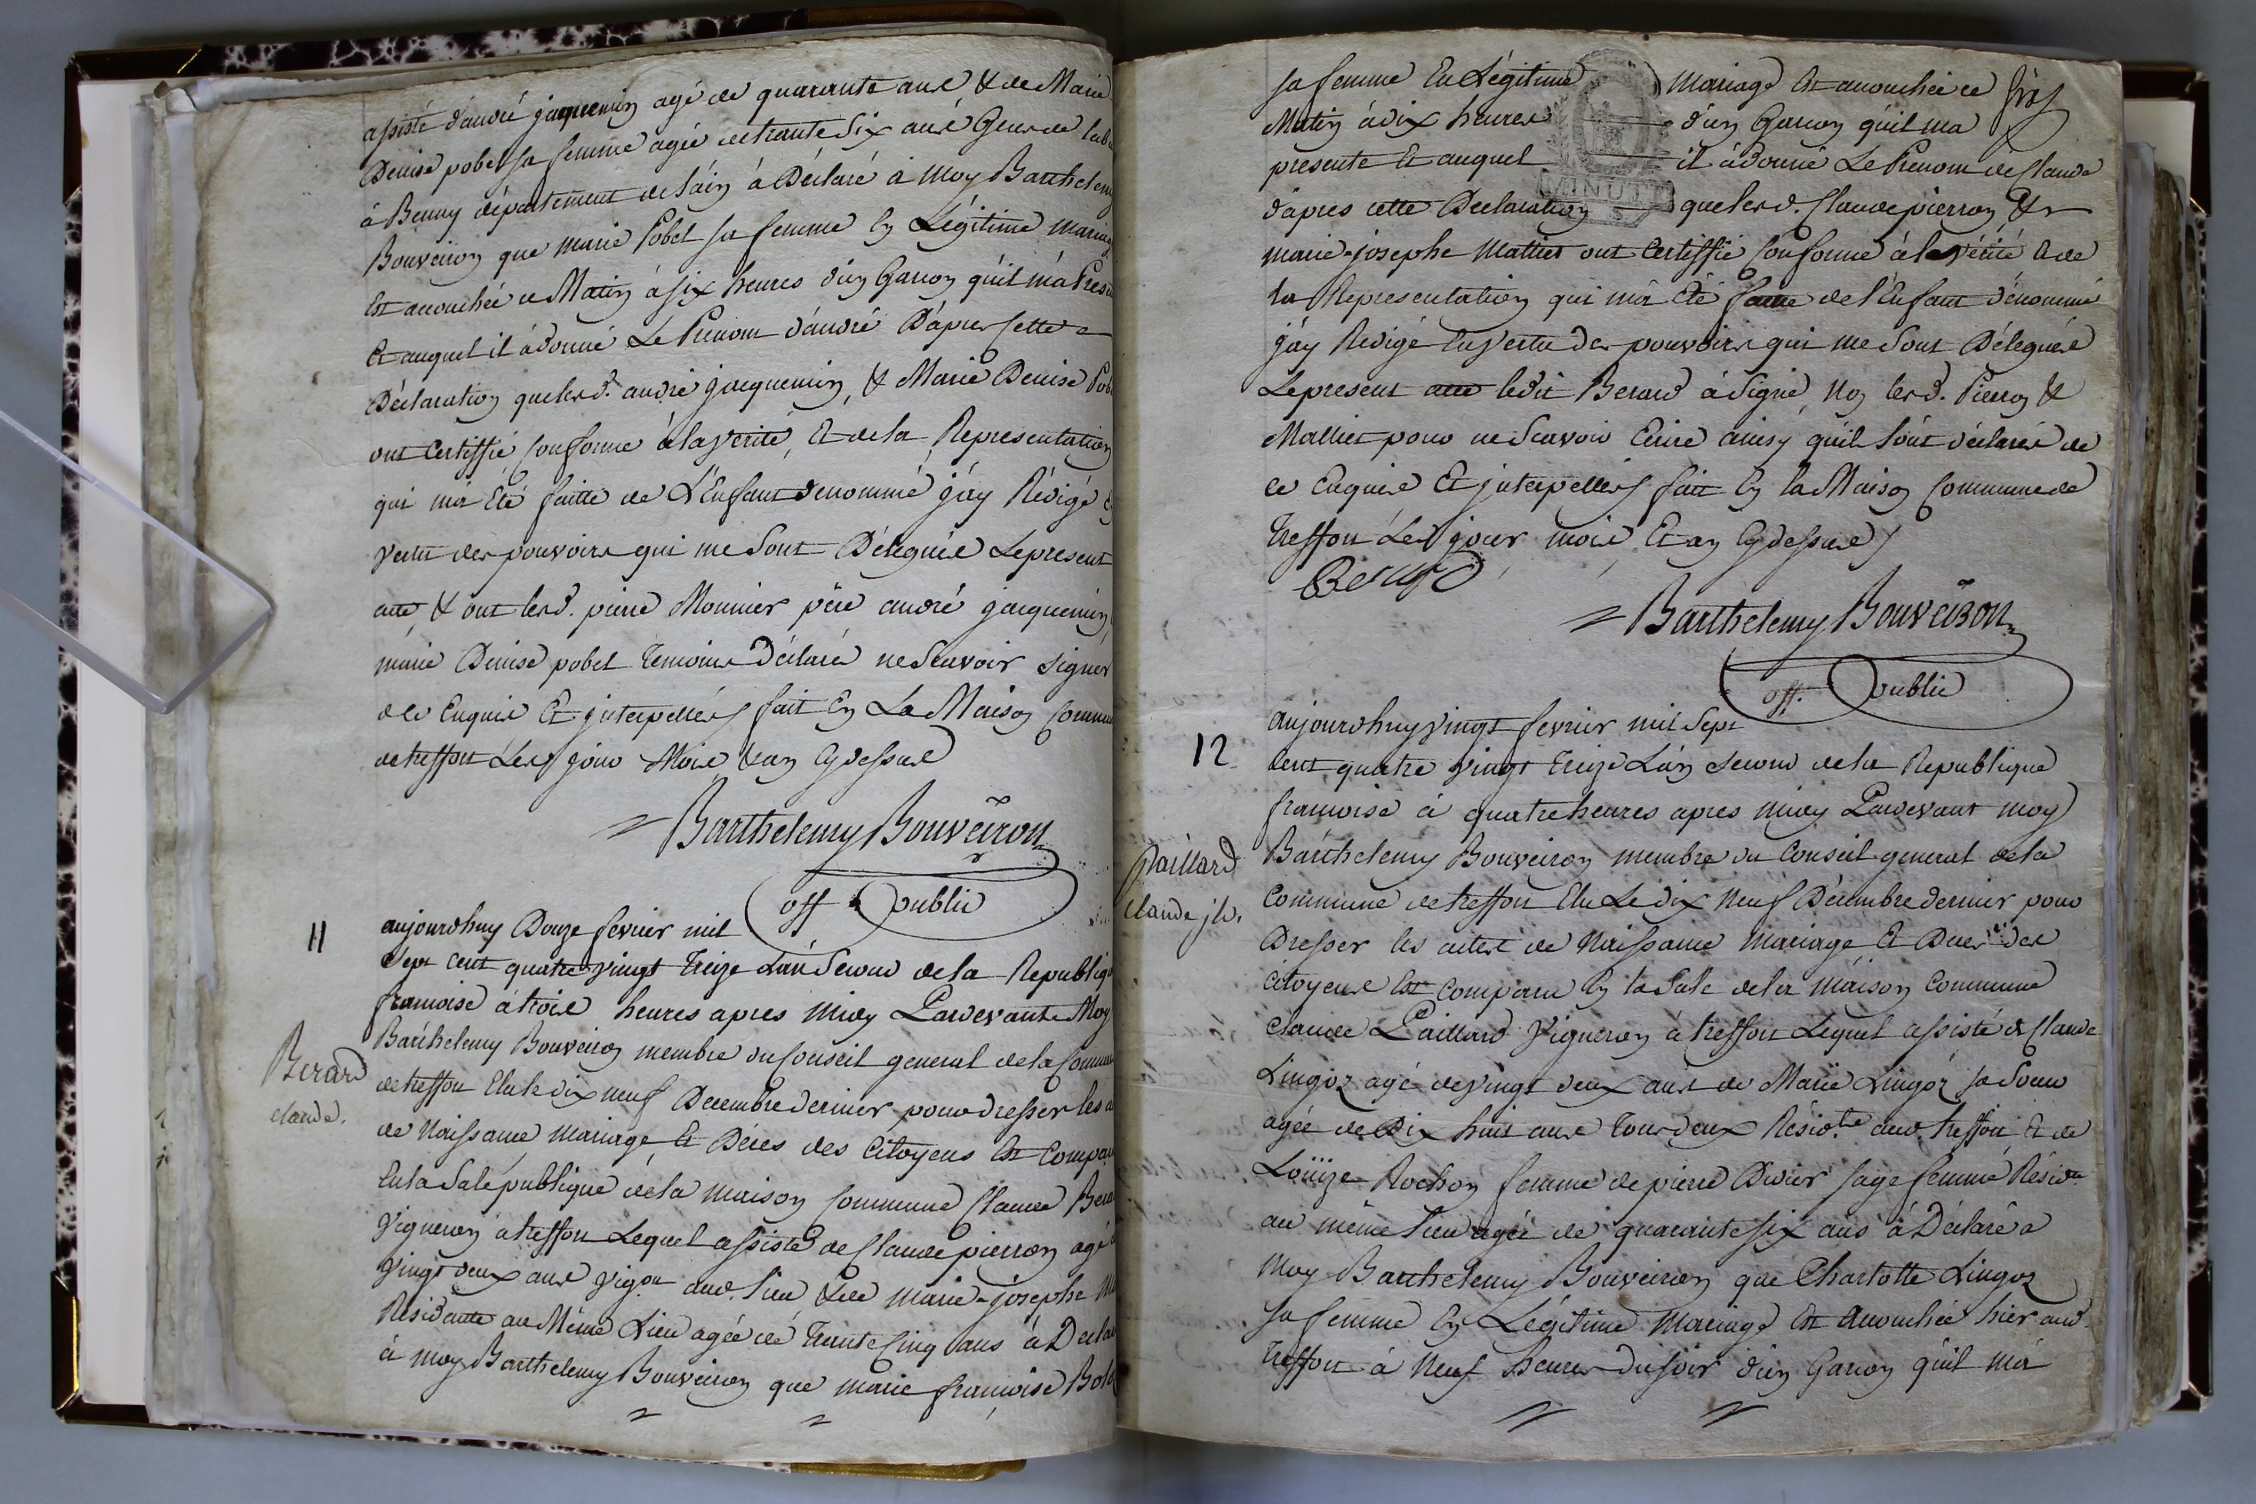 assisté d'andré jaquemin agé de quarante ans & de Marie
Denise pobel sa femme agée de trante six ans Gens de
à Benny département de l'ain à Déclaré à moy Barthelemy
Bouveiron que marie Pobel sa femme en Légitime mariag
Est accouchée ce Matin à six heures d'un Garcon quil m'a
Et auquel il à donné Le Prenom d'andré D'apres Cette
Déclaration que lesd. andré jacquemin, & Marie Denise
ont Certiffié Conforme à la verité, Et de la Representation
qui m'a Eté faitte de L'Enfant denommé j'ay Rédigé
vertu des pouvoirs qui me Sont Délégués Le present
acte & ont lesd. pierre Monnier père andré jacquemin
marie Denise pobel temoins Déclaré ne Scavoir signer
de ce Enquis Et jnterpellés fait En La Maison
de treffort Les jour Mois & an Cydessus
Barthelemy Bouveiron
off public
11
aujourdhuy Douze fevrier mil
Sept cent quatre vingt treize L'an Second de la
francoise à trois heures apres midy Pardevant Moy
Barthelemy Bouveiron membre du Conseil general de la
de treffort Elu le dix neuf Decembre dernier pour dresser les
Berard
claude.
de Naissance mariage Et Décès des Citoyens Est
En la Sale publique de la maison Commune Claude
Vigneron à treffort Lequel assisté de Claude pierron agé
vingt deux ans vigon. aud. Lieu & de marie-josephe
Résidante au Même Lieu agée de trente Cinq ans à
à moy Barthelemy Bouveiron que marie francoise
sa femme En Légitime mariage Est accouchée ce
Matin à dix heures d'un Garcon quil ma
presenté Et auquel il à donné Le Prenom de Claude
MINUT
d'apres cette Declaration que lesd. Claude pierron &
marie-josephe Mattiet ont Certiffié Conforme à la vérité & de
la Representation qui m'a Eté faitte de l'Enfant dénommé
j'ay Redigé En vertu des pouvoirs qui me Sont Délégués
Le present acte ledit Berard à Signé, Non lesd. Pierron &
Mattiet pour ne Scavoir Ecrire ainsy quil Sont déclarés de
ce Enquis Et jnterpellés fait En la Maison Commune de
treffort Les jour mois Et an Cydessus
Berard
Barthelemy Bouveiron
off. public
12
aujourdhuy vingt fevrier mil Sept
Cent quatre vingt treize L'an Second de la Republique
francoise à quatre heures apres midy Pardevant moy
Paillard
claude, js.
Barthelemy Bouveiron membre du Conseil general de la
Commune de treffort Elu Le dix Neuf Décembre dernier pour
Dresser les actes de Naissance Mariage Et Deces des
citoyens Est Comparu En la Sale de la maison Commune
Claude Paillard Vigneron à treffort Lequel assisté de Claude
Lingoz agé de vingt deux ans de Marie Lingoz sa Soeur
agée de Dix huit ans tous deux Résid.ts aud. treffort Et de
Loüize Rochon femme de pierre Divier sage femme
au même Lieu agée de quarante six ans à Déclaré a
Moy Barthelemy Bouveiron que Charlotte Lingoz
sa femme En Légitime Mariage Est accouchée hier aud.
treffort à Neuf heures du soir d'un Garcon qu'il m'a